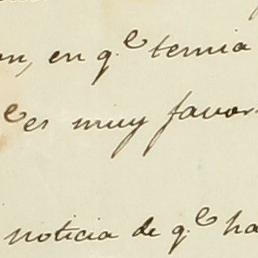 on, en q.e temia
e es muy favor
noticia de q.e ha